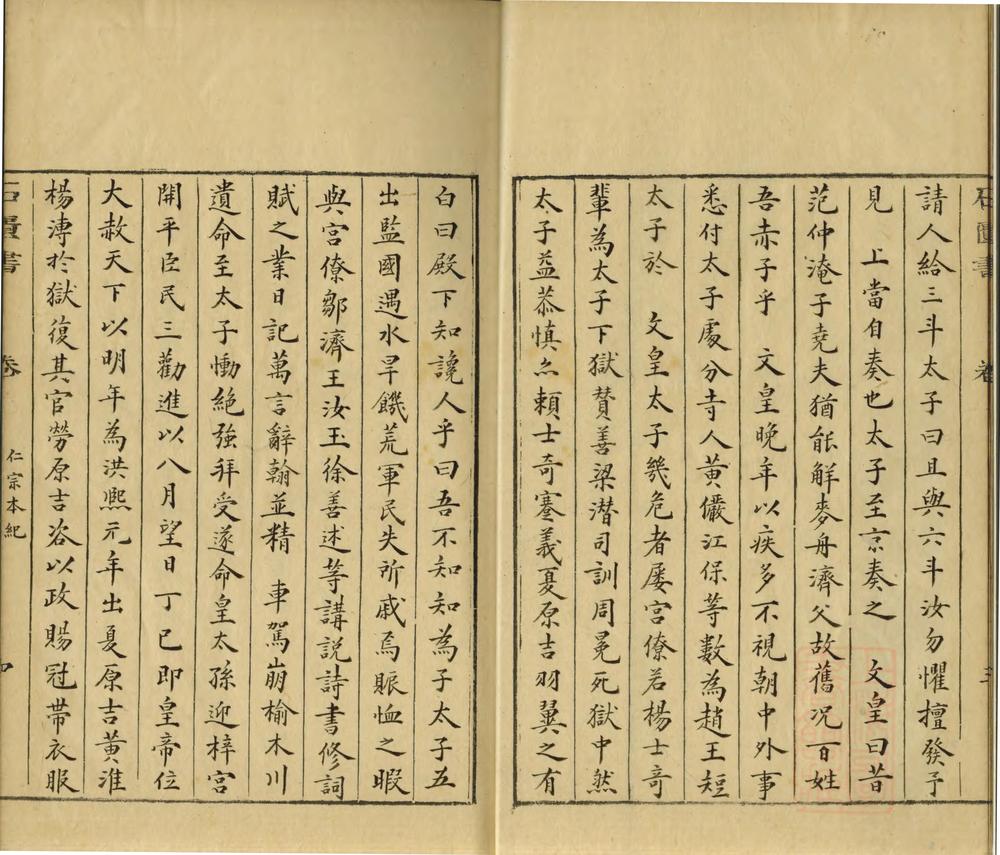 石匱書 卷 三
請人給三斗太子曰且與六斗汝勿懼擅發予
見 上當自奏也太子至京奏之 文皇曰昔
范仲淹子堯夫猶能解麥舟濟父故舊况百姓
吾赤子乎 文皇晚年以疾多不視朝中外事
悉付太子處分寺人黃儼江保等數為趙王短
太子於 文皇太子幾危者屡宮僚若楊士竒
輩為太子下獄贊善梁潜司訓周冕死獄中然
太子益恭慎亦頼士奇蹇義夏原吉羽翼之有
白曰殿下知讒人乎曰吾不知知為子太子五
出監國遇水旱饑荒軍民失所戚焉賑恤之暇
與宮僚鄒濟王汝玉徐善述等講説詩書修詞
賦之業日記萬言辭翰並精 車駕崩榆木川
遺命至太子慟絶強拜受遂命皇太孫迎梓宮
開平臣民三勸進以八月望日丁巳即皇帝位
大赦天下以明年為洪熈元年出夏原吉黃淮
楊溥於獄復其官勞原吉咨以政賜冠帶衣服
石匱書 卷 仁宗本紀 四